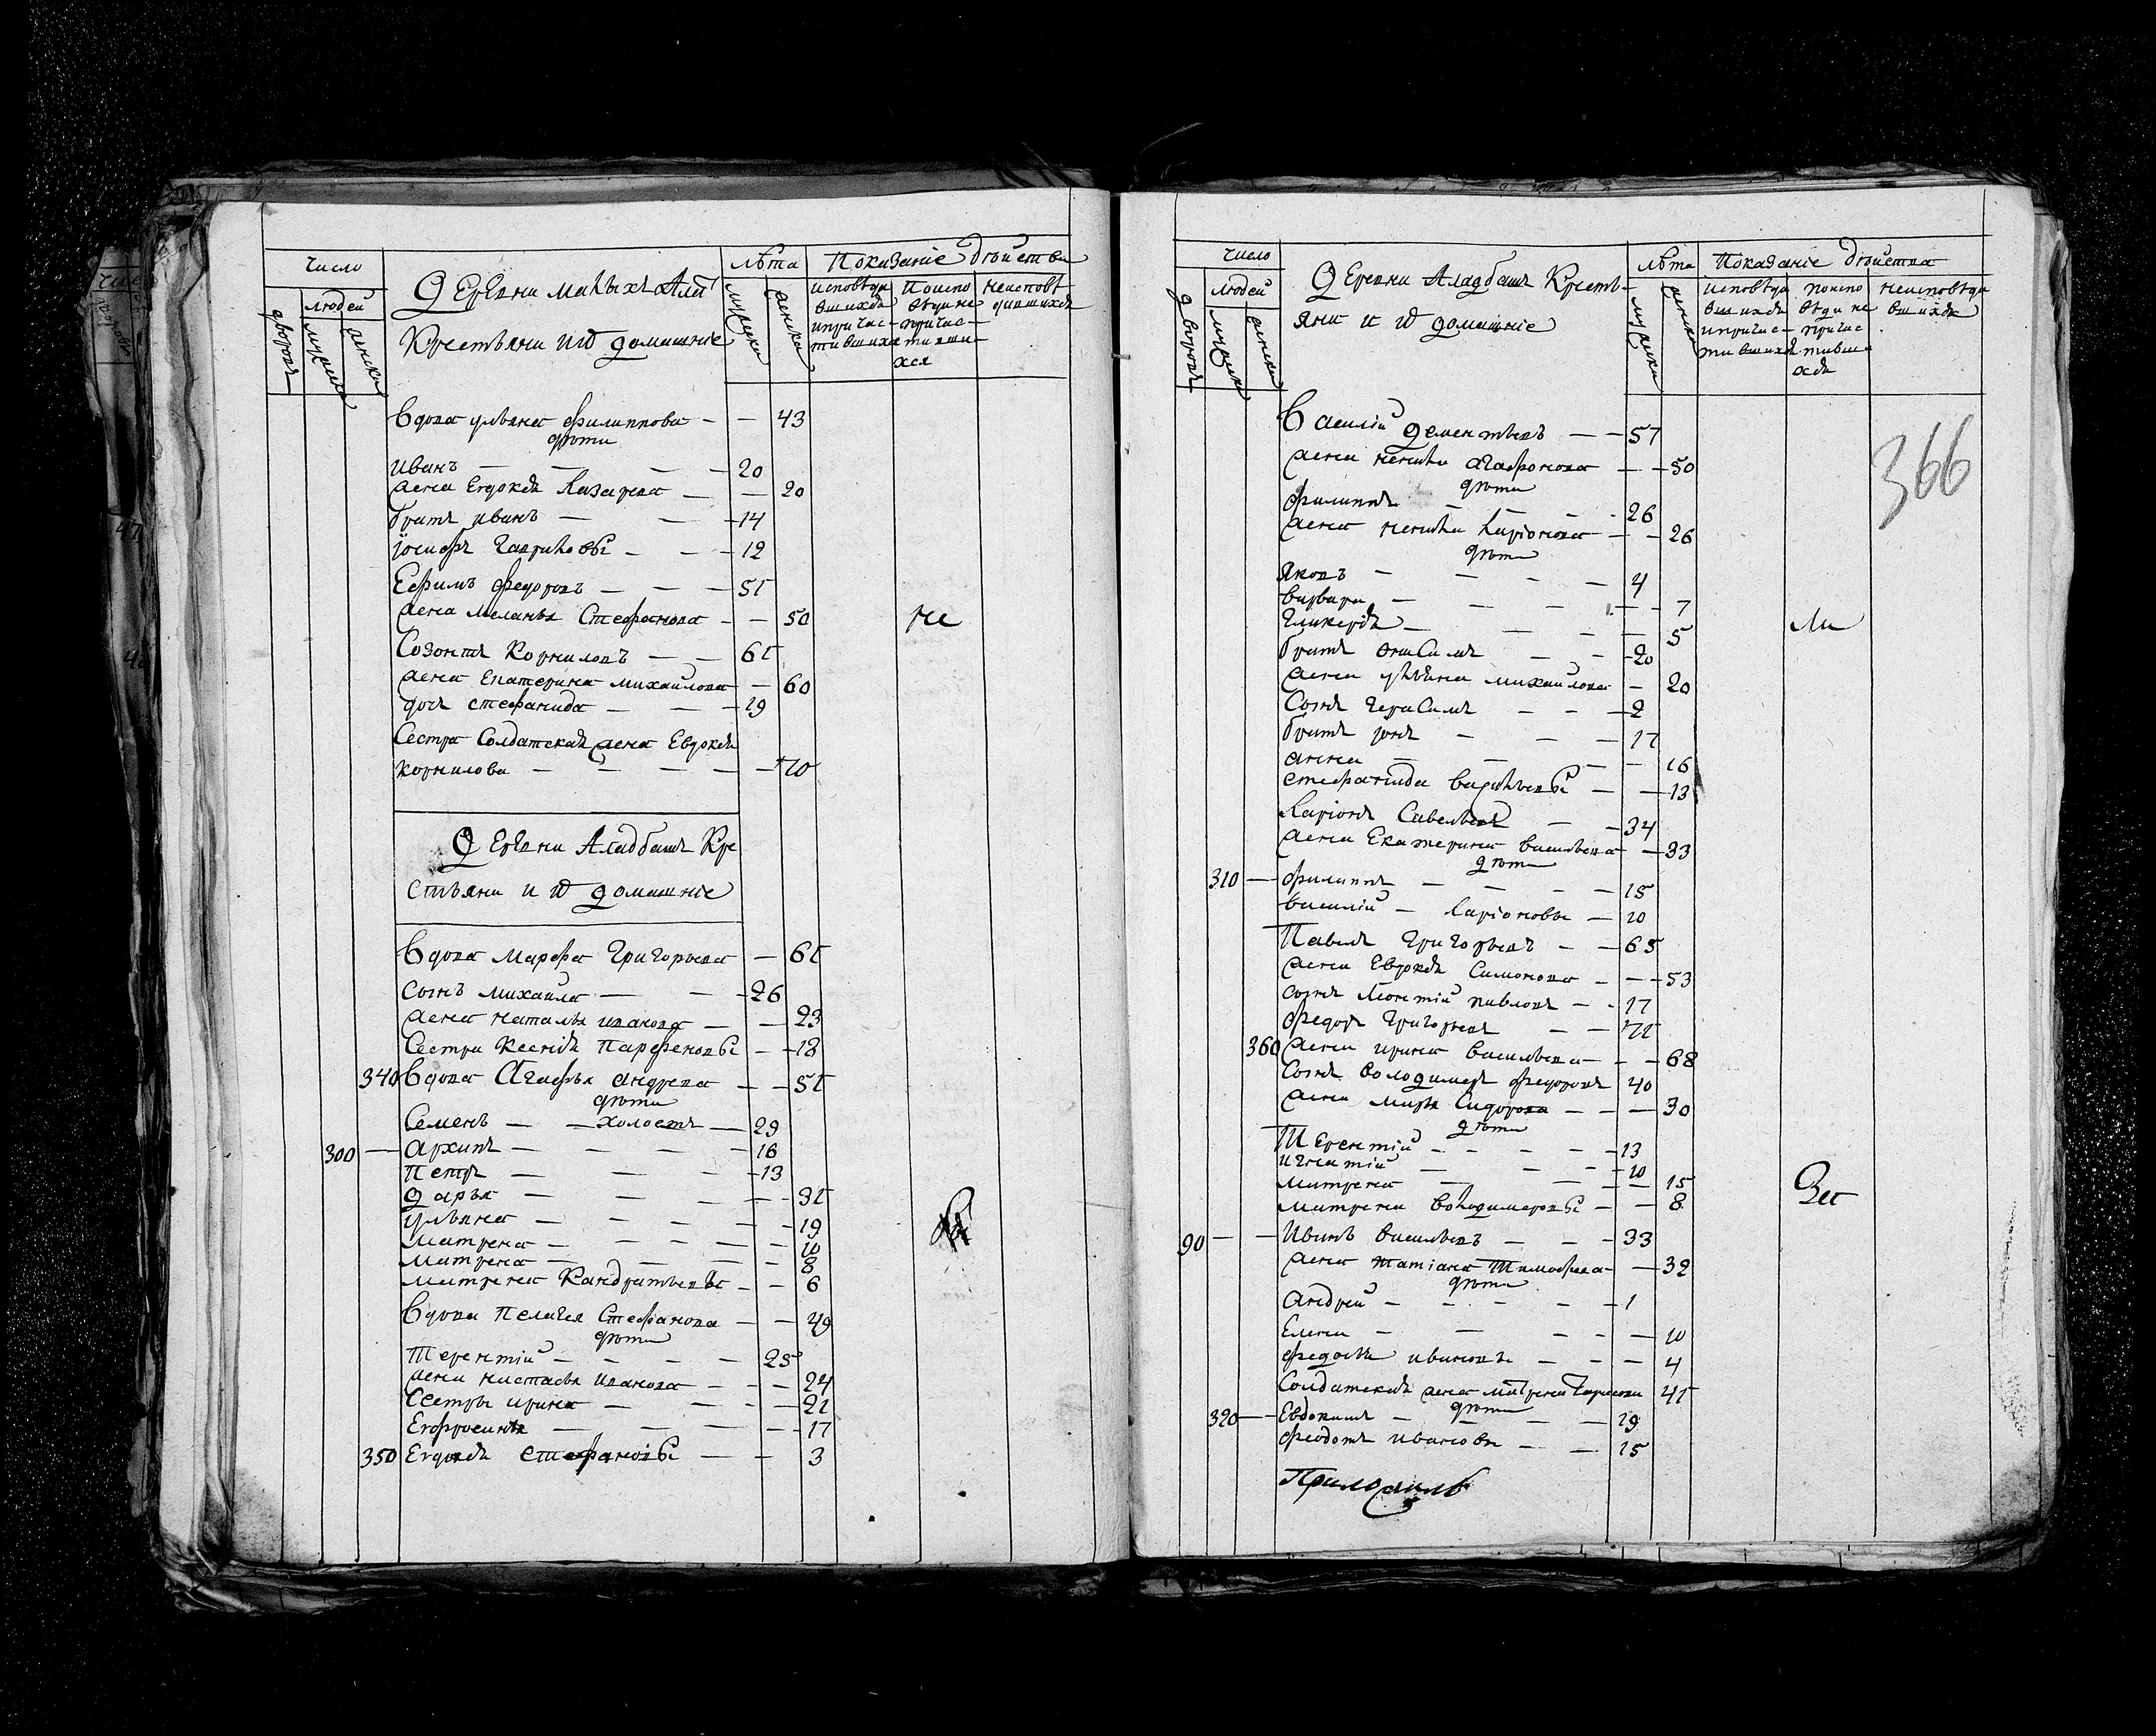 число
людей
дворовъ
мужска
женска
Деревни малыхъ Ала
Крестьяни и иϖ домашнїе
лѣта
мужска
женска
Показанїе Действа
исповѣда вшихся и причас- тившихся
Поиспо вѣди не причас- тивши хся
неисповѣ дившихся
Вдова ульяна филиппова — — 43
дѣти
иванъ — — — — 20
жена Евдокѣя Лазарева — — 20
братъ иванъ — — 14
їосифъ Гавриловы — — 12
Ефимъ федоровъ — — — 51
жена меланья Стефанова — — 50
не
Созонтъ Корниловъ — — 61
жена Екатерина михаилова — 60
дочь стефанида — — 19
Сестра Солдатская жена Евдокѣя
корнилова — — — — — 70
Деревни Аладбашъ Кре
стьяни и иϖ домашнїе
Вдова Марфа Григорьева — 61
сынъ михаила — — 26
жена наталья иванова — — 23
Сестра Ксенїя Парфеновы — — 18
340 Вдова Агафья андреева — — 51
дѣти
Семенъ — — холостъ — 29
300 — архипъ — — — — 16
Петръ — — — 13
Дарья — — — — 31
ульяна — — — — 19
матрена — — — — 10
матрена — — — — 8
матрена Кандратьевы — — 6
Вдова Пелагея Стефанова — — 49
дѣти
Терентїй — — — — 25
жена настасья иванова — — — 24
Сестры ирина — — — 21
Ефросинья — — — 17
350 Евдокѣя стефановы — — 3
число
людей
дворовъ
мужска
женска
Деревни Аладбашъ Кресть-
яни и иϖ домашнїе
лѣта
мужска
женска
Показанїе действа
исповѣда вшихся и причас- тившихся
поиспо вѣди не причас тивши хся
неисповѣда вшихся
366
Василїй дементьевъ — — 57
жена ненила агафонова — — 50
дѣти
филиппъ — — — 26
жена ненила Ларїонова — — 26
дѣти
яковъ — — — — 4
варвара — — — — 7
Гликерїя — — — — 5
ли
братъ онисимъ — — 20
жена ульяна михаилова — 20
Сынъ герасимъ — — — 2
братъ їона — — — 17
анна — — — — 16
стефанида васильевы — — 13
Ларїонъ Савельевъ — — 34
жена Екатерина васильева — 33
дѣти
310 — филиппъ — — — — 15
василїй — Ларїоновы — 10
Павелъ григорьевъ — — 65
жена Евдокѣя Симонова — — — 53
сынъ Леонтїй павловъ — — 17
федоръ григорьевъ — — 71
360 жена ирина васильева — — 68
Сынъ володимеръ федоровъ 40
жена марья Сидорова — — — 30
дѣти
Терентїй — — — — 13
игнатїй — — — 10
матрена — — — — 15
матрена володимеровы — — 8
90 — — Иванъ васильевъ — — — 33
жена татїана Тимофеева — 32
дѣти
андрей — — — — 1
Елена — — — — — 10
федосья ивановы — — — 4
Солдатская жена матрена борисова 41
дѣти
320 — Евдокимъ — — — — 19
феодотъ ивановы — — 15